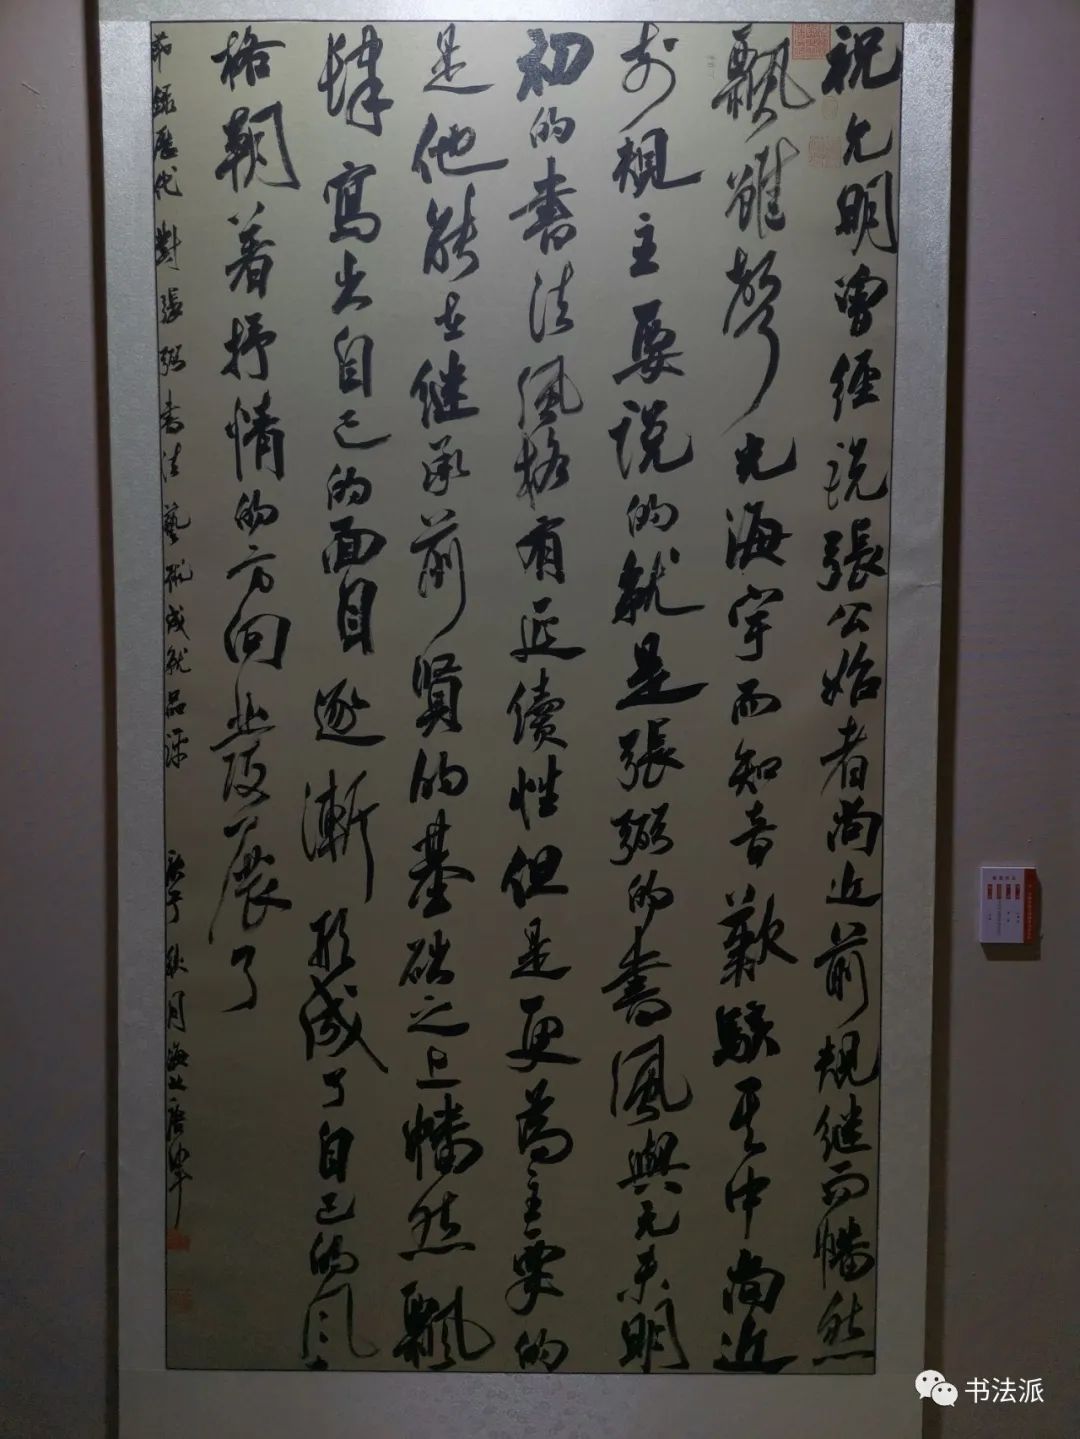 祝允明曾经说張公始者尚近前规继而幡然
飘 雖声光海宇而知音歎駭其中尚近
前规主要说的就是張弼的書風與元末明
初的書法風格有延續性但是更為主要的
是他能在继承前賢的基础之上幡然飘
肆寫出自己的面目逐漸形成了自己的風
格朝着抒情的方向出發展了
節錄歷代對張弼書法藝術成就品评 庚子秋月海上
书法派